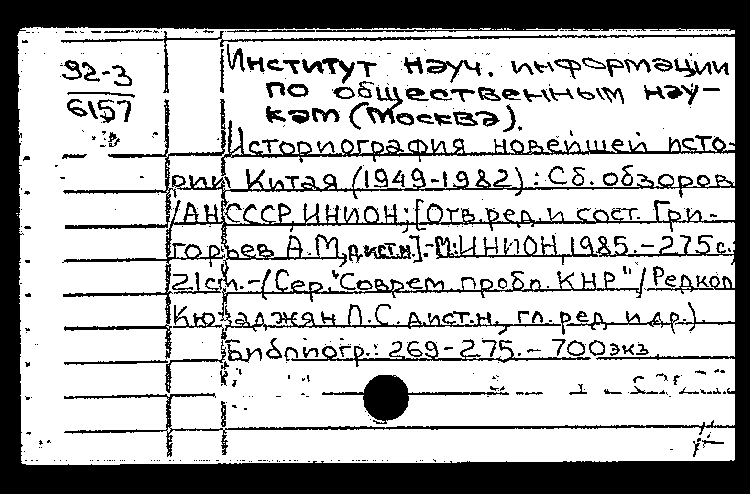 92-3
6157
Институт науч. информации
по общественным нау-
кам (Москва).
Историография новейшей исто-
рии Китая (1949-1982): Сб. обзоров
/АН СССР, ИНИОН; [Отв. ред. и сост. Гри-
горьев А.М., д.ист.н.]. - М.: ИНИОН, 1985. - 275 с.;
21 cm. - (Сер. "Соврем. пробл. КНР" / Редкол.
Кюзаджян Л.С. д.ист.н., гл. ред. и др.).
Библиогр.: 269-275. - 700 экз.